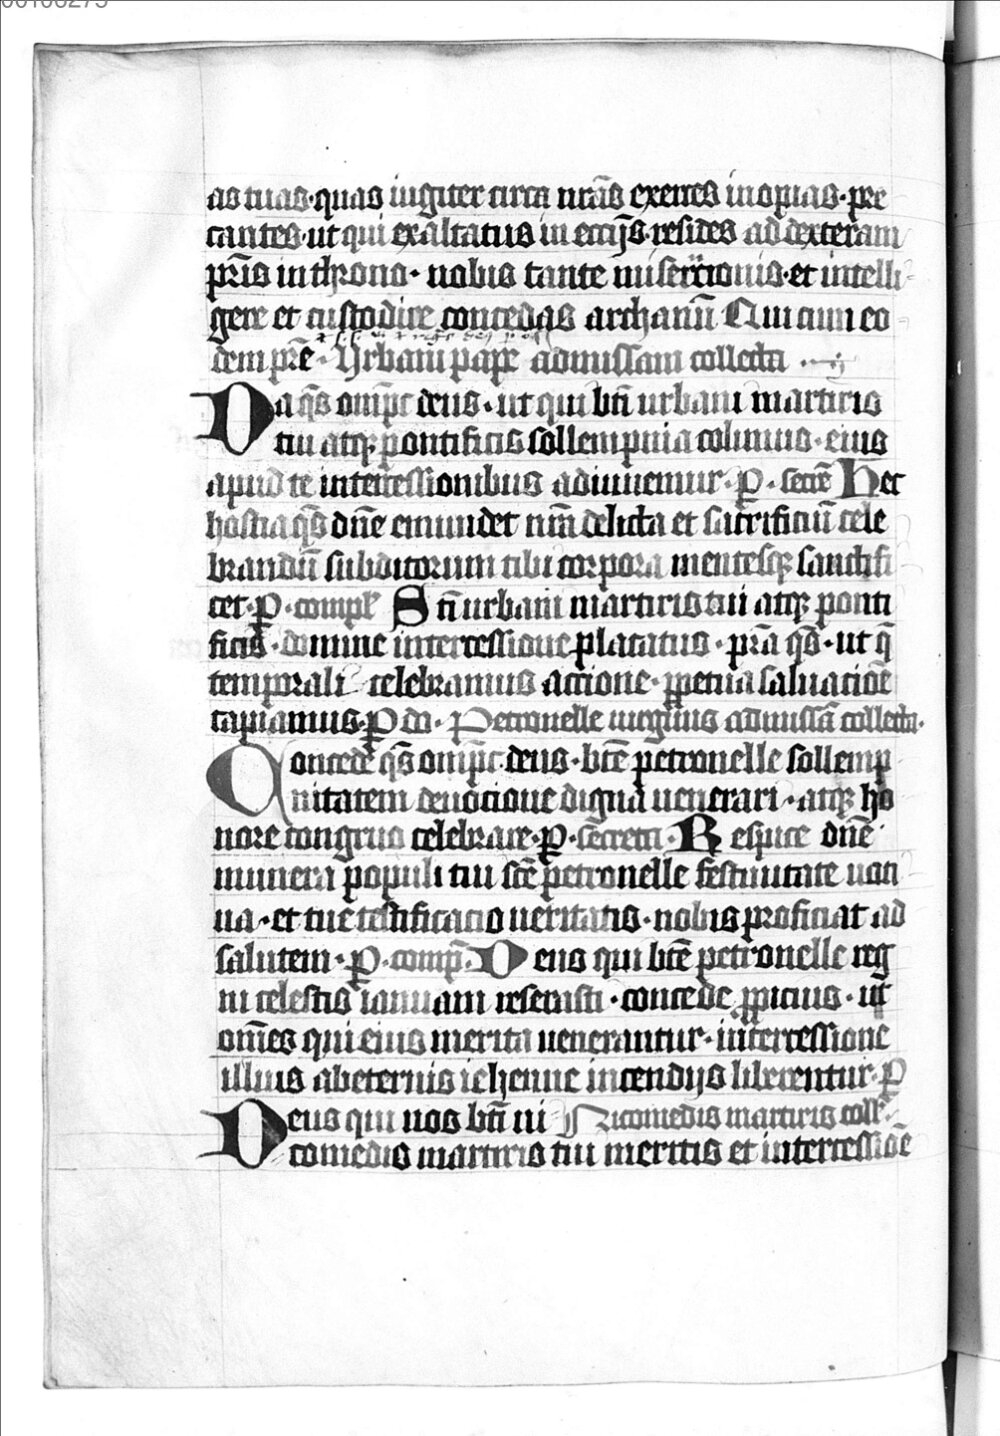 as tuas · quas iugiter circa nrās exerces inopias · pre
cantes · ut qui exaltatus in eccijs resides ad dexteram
pr̄is in throno · nobis tante miseracionis · et intelli
gere et custodire concedas archanū Qui cum eo
dem pr̄e · Urbani pape ad missam collecta
Da q̄s om̄ps deus · ut qui bt̄i urbani martiris
tui atq; pontificis sollempnia colimus · eius
apud te intercessionibus adiuuemur · P̱ · secre Hec
hostia q̄s dn̄e emundet nr̄a delicta et sacrificiū cele
brandū subditorum tibi corpora mentesq; sanctifi
cet · P̱ · compl̄ Sc̄i urbani martiris tui atq; ponti
ficis · domine intercessione placatus · pr̄a q̄s · ut q̄
temporali celebramus accione · ꝑpetua saluacioē
capiamus · P̱ dn̄ · Petronelle uirginis ad missā collecta ·
Concede q̄s om̄ps deus · bt̄e petronelle sollemp
nitatem deuocione dignā uenerari · atq; ho
nore congruo celebrare · P̱ · secreta · Respice dn̄e
munera populi tui sc̄e petronelle festiuitate uoti
ua · et tue testificacio ueritatis · nobis proficiat ad
salutem · P̱ · comp̄ · Deus qui bt̄e petronelle reg
ni celestis ianuam reserasti · concede ꝓpicius · ut
om̄es qui eius merita uenerantur · intercessione
illius ab eternis iehenne incendijs liberentur · P̱
Deus qui nos bt̄i ni Nicomedis martiris coll̄ ·
comedis martiris tui meritis et intercessiōe